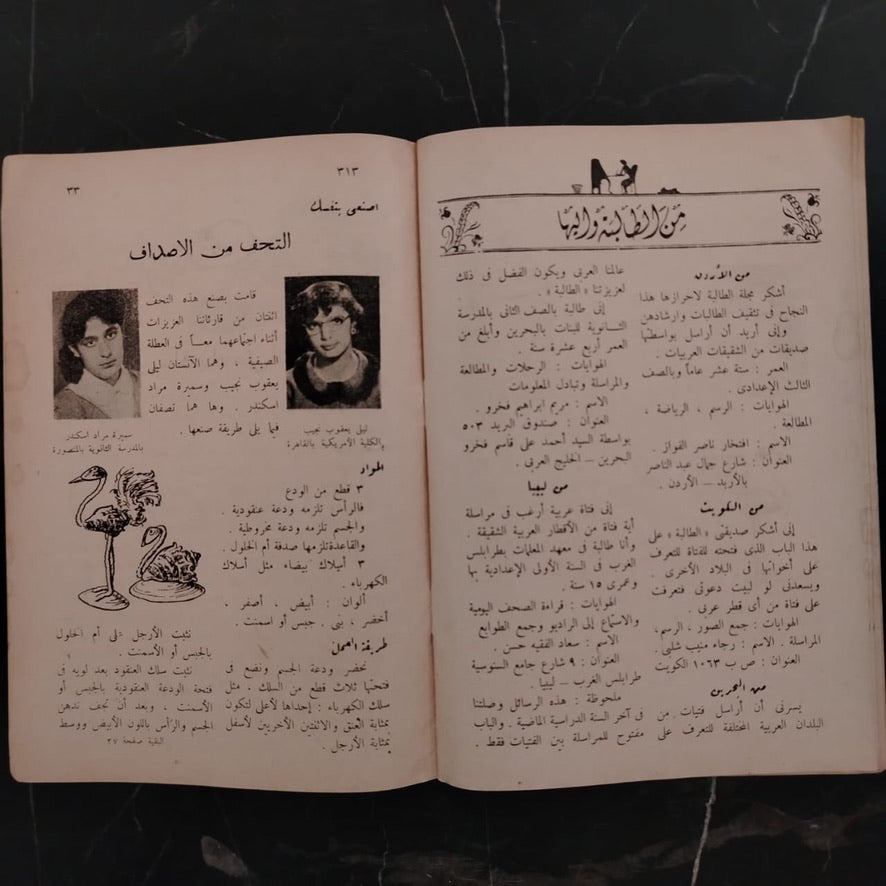 من الطالبة واليها
من الأردن
أشكر مجلة الطالبة لاحرازها هذا
النجاح فى تثقيف الطالبات وارشادهن
وإنى أريد أن أراسل بواسطتها
صديقات من الشقيقات العربيات .
العمر : ستة عشر عاماً وبالصف
الثالث الإعدادى .
الهوايات : الرسم ، الرياضة ،
المطالعة .
الاسم : افتخار ناصر الفواز .
العنوان : شارع جمال عبد الناصر
بالأربد – الأردن .
من الكويت
إنى أشكر صديقتى « الطالبة » على
هذا الباب الذى فتحته للفتاة للتعرف
على أخواتها فى البلاد الأخرى .
ويسعدنى لو لبيت دعوتى فتعرفت
على فتاة من أى قطر عربى .
الهوايات : جمع الصور ، الرسم ،
المراسلة . الاسم : رجاء منيب شلبى .
العنوان : ص ب ١٠٦٣ الكويت
من البحرين
يسرنى أن أراسل فتيات من
البلدان العربية المختلفة للتعرف على
عالمنا العربى ويكون الفضل فى ذلك
لعزيزتنا « الطالبة » .
إنى طالبة بالصف الثانى بالمدرسة
الثانوية للبنات بالبحرين وأبلغ من
العمر أربع عشرة سنة .
الهوايات : الرحلات والمطالعة
والمراسلة وتبادل المعلومات
الاسم : مريم ابراهيم فخرو .
العنوان : صندوق البريد ٥٠٣
بواسطة السيد أحمد على قاسم فخرو
البحرين – الخليج العربى .
من ليبيا
إنى فتاة عربية أرغب فى مراسلة
أية فتاة من الأقطار العربية الشقيقة .
وأنا طالبة فى معهد المعلمات بطرابلس
الغرب فى السنة الأولى الإعدادية بها
وعمرى ١٥ سنة .
الهوايات : قراءة الصحف اليومية
والاستماع إلى الراديو وجمع الطوابع
الاسم : سعاد الفقيه حسن .
العنوان : ٩ شارع جامع السنوسية
طرابلس الغرب – ليبيا .
ملحوظة : هذه الرسائل وصلتنا
فى آخر السنة الدراسية الماضية . والباب
مفتوح للمراسلة بين الفتيات فقط .
٣١٣
٣٣
اصنعى بنفسك
التحف من الاصداف
قامت بصنع هذه التحف
اثنتان من قارئاتنا العزيزات
أثناء اجتماعهما معاً فى العطلة
الصيفية ، وهما الآنستان ليلى
يعقوب نجيب وسميرة مراد
اسكندر . وها هما تصفان
فيما يلى طريقة صنعها .
ليلى يعقوب نجيب
بالكلية الأمريكية بالقاهرة
سميرة مراد اسكندر
بالمدرسة الثانوية بالمنصورة
المواد
٣ قطع من الودع
فالرأس تلزمه ودعة عنقودية .
والجسم تلزمه ودعة مخروطية .
والقاعدة تلزمها صدفة أم الخلول .
٣ أسلاك بيضاء مثل أسلاك
الكهرباء .
ألوان : أبيض ، أصفر ،
أخضر ، بنى . جبس أو اسمنت .
طريقة العمل
نحضر ودعة الجسم ونضع فى
فتحتها ثلاث قطع من السلك ، مثل
سلك الكهرباء : إحداها لأعلى لتكون
بمثابة العنق والاثنتين الأخريين لأسفل
بمثابة الأرجل .
نثبت الأرجل على أم الخلول
بالجبس أو الأسمنت .
نثبت سلك العنقود بعد لويه فى
فتحة الودعة العنقودية بالجبس أو
الأسمنت ، وبعد أن تجف ندهن
الجسم والرأس باللون الأبيض ووسط
البقية صفحة ٣٧